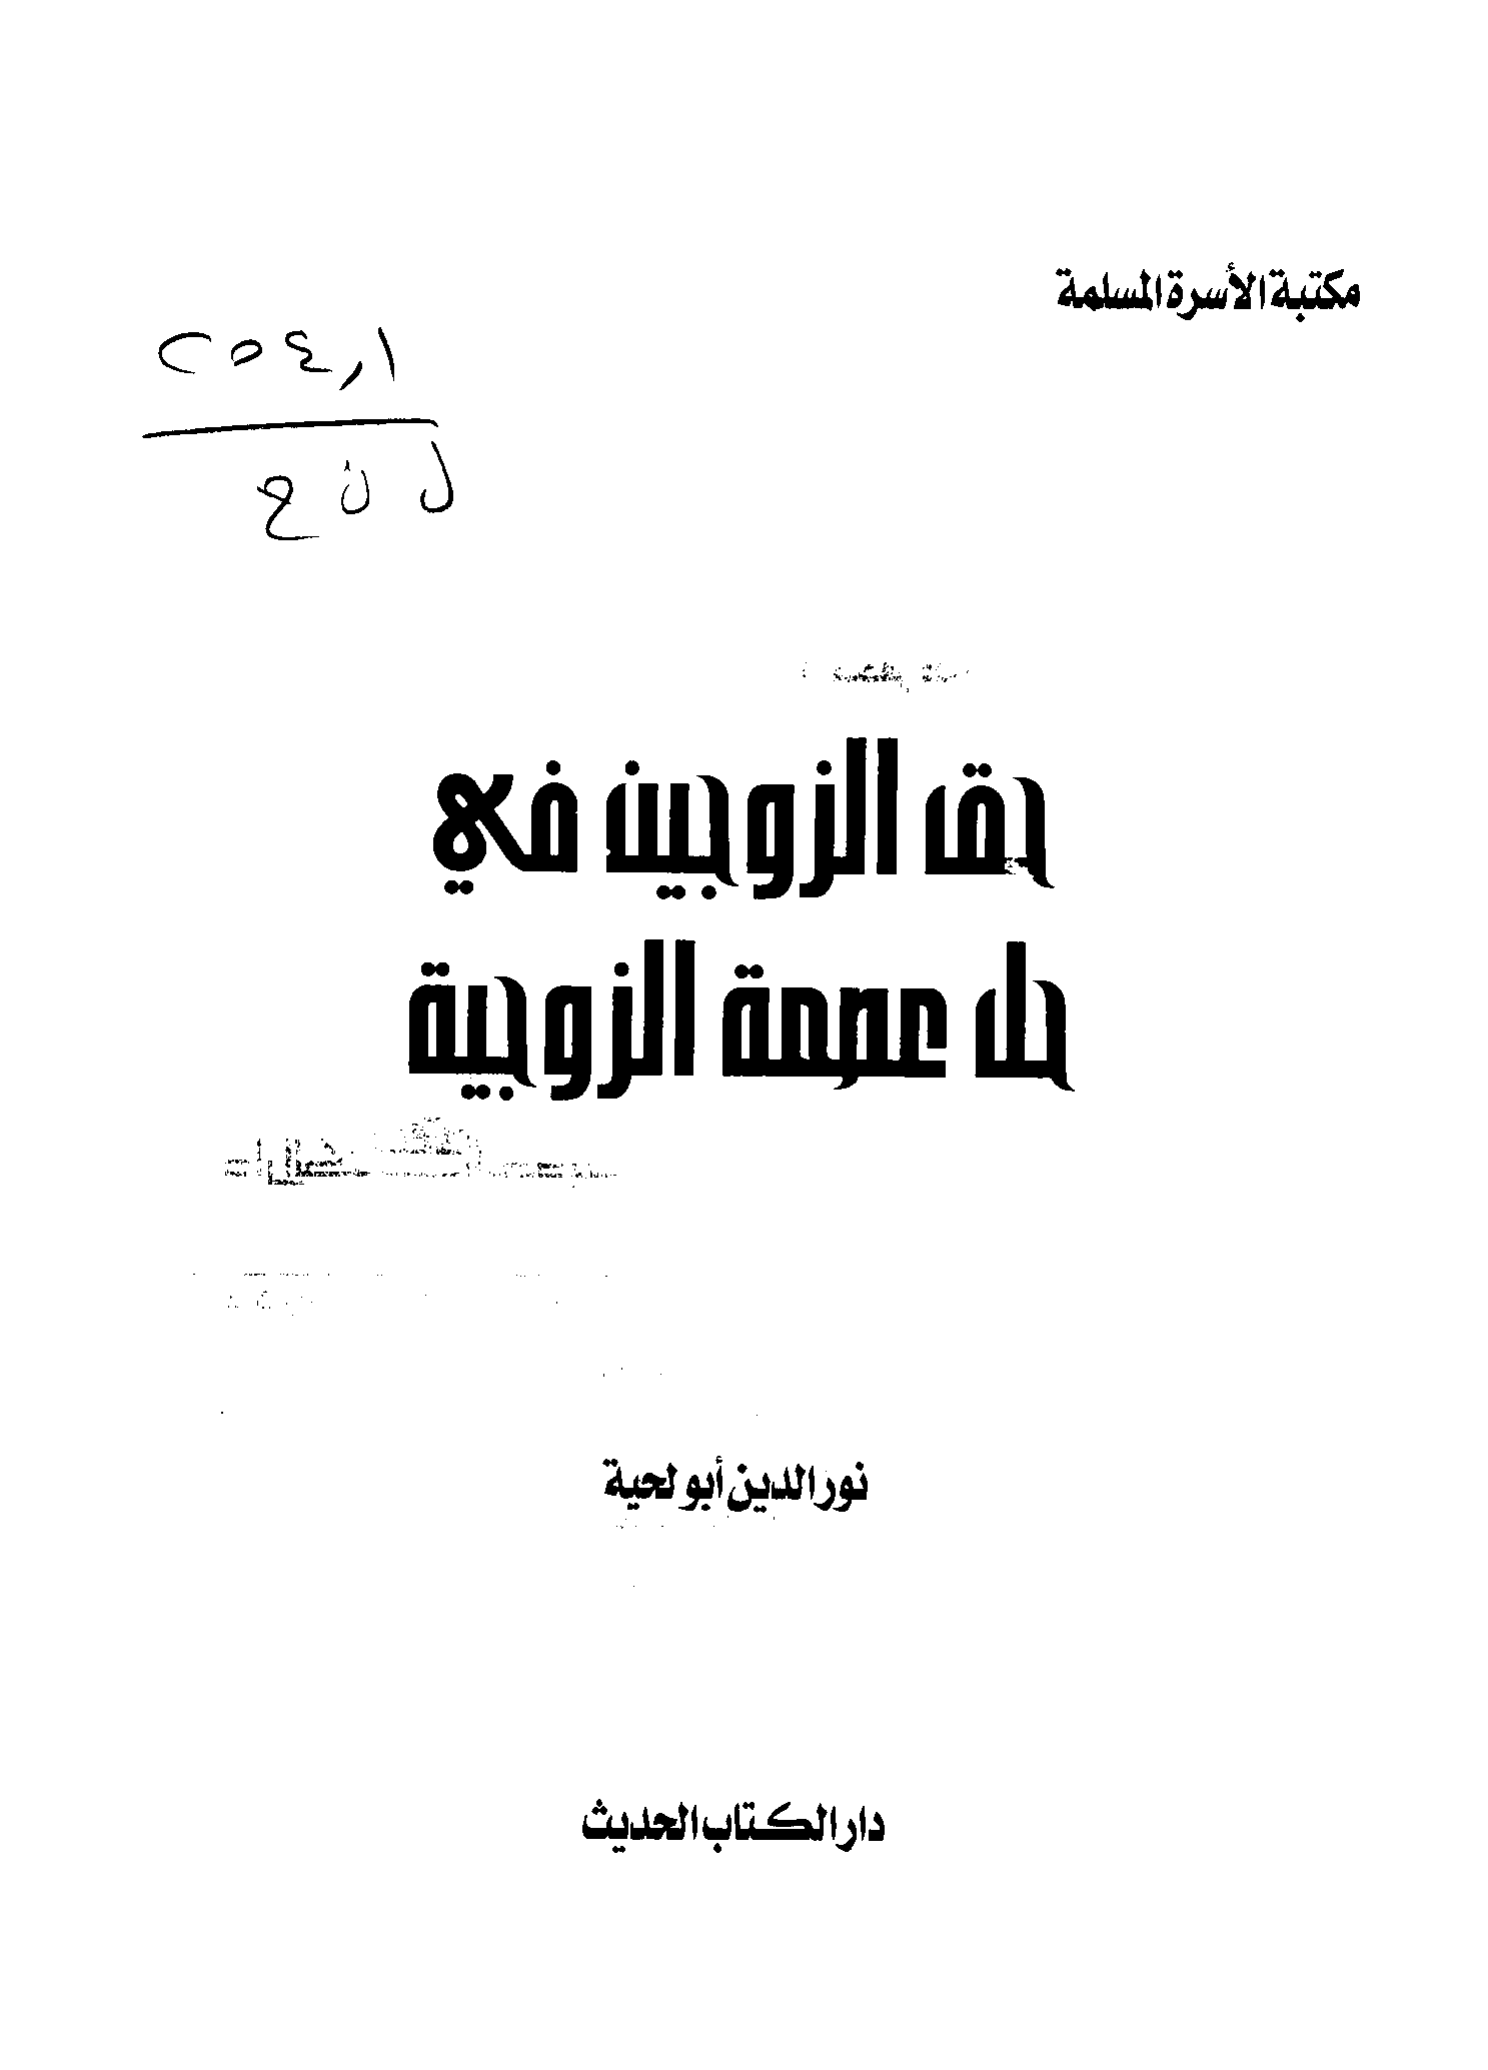 مكتبة الأسرة المسلمة
٢٥٤,١
ل ن ح
حق الزوجين في
حل عصمة الزوجية
نور الدين أبو لحية
دار الكتاب الحديث